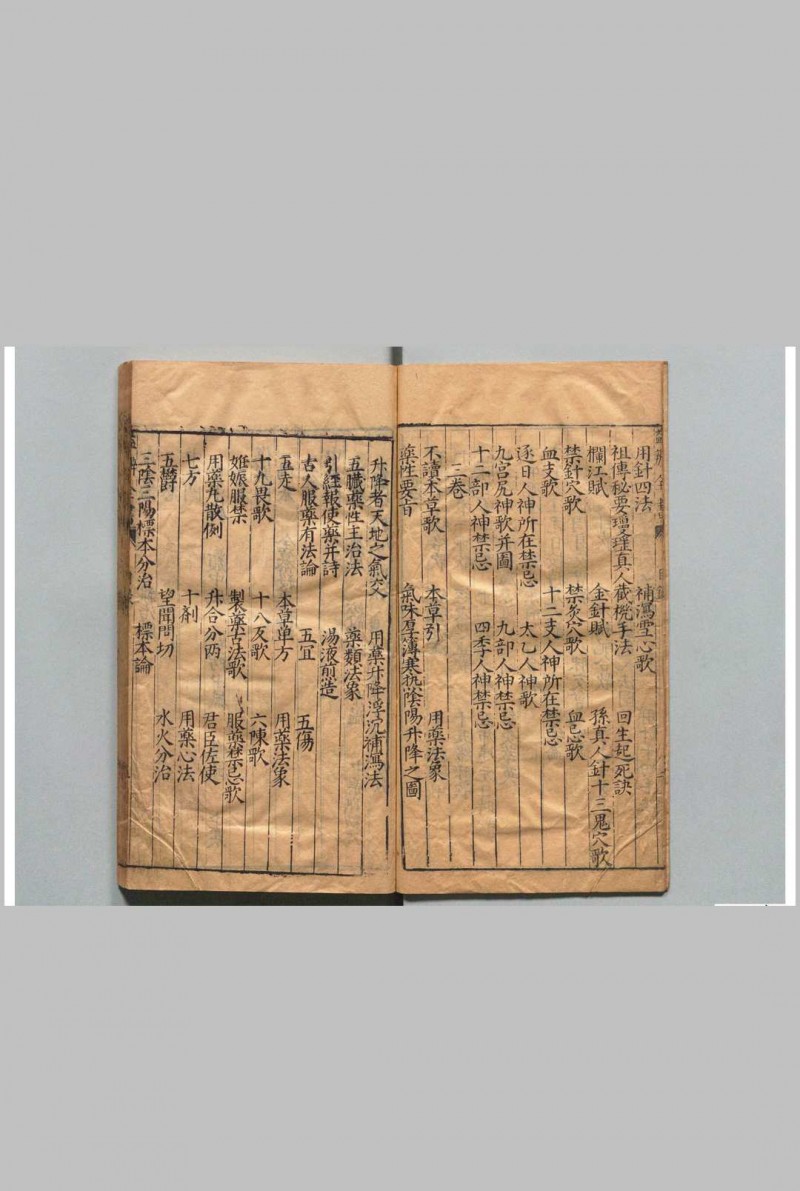 用針四法　補瀉雪心歌
祖傳秘要瓊瑾真人截梡手法　回生起死訣
欄江賦　金針賦　孫真人針十三鬼穴歌
禁針穴歌　禁灸穴歌　血忌歌
血支歌　十二支人神所在禁忌
逐日人神所在禁忌　太乙人神歌
九宮尻神歌并圖　九部人神禁忌
十二部人神禁忌　四季人神禁忌
三卷
不讀本草歌　本草引　用藥法象
藥性要旨　氣味厚薄寒熱陰陽升降之圖
升降者天地之氣交　用藥升降浮沉補瀉法
五臟藥性主治法　藥類法象
引經報使藥并詩　湯液煎造
古人服藥有法論　五宜　五傷
五走　本草单方　用藥法象
十九畏歌　十八反歌　六陳歌
姙娠服禁　製藥古法歌　服藥禁忌歌
用藥丸散例　升合分两　君臣佐使
七方　十剤　用藥心法
五欝　望聞問切　水火分治
三陰三陽標本分治　標本論